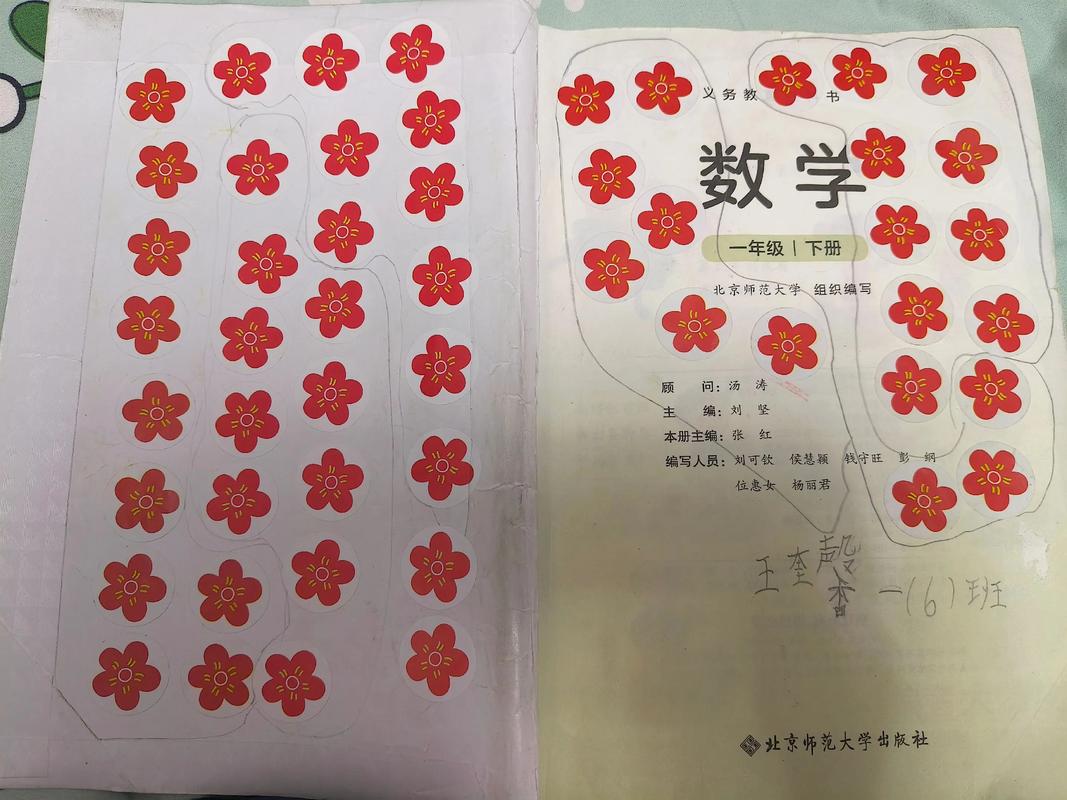 义务教 书
数学
一年级 | 下册
北京师范大学 组织编写
顾 问：汤 涛
主 编：刘 坚
本册主编：张 红
编写人员：刘可钦 侯慧颖 钱守旺 彭 纲
位惠女 杨丽君
王奎馨 一（6）班
北京师范大学出版社